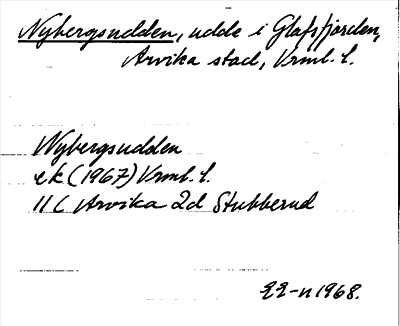 Nybergsudden, udde i Glafsfjorden,
Arvika stad, Vrml. l.
Nybergsudden
ek (1967) Vrml. l.
11 C Arvika 2d Stubberud
1968.